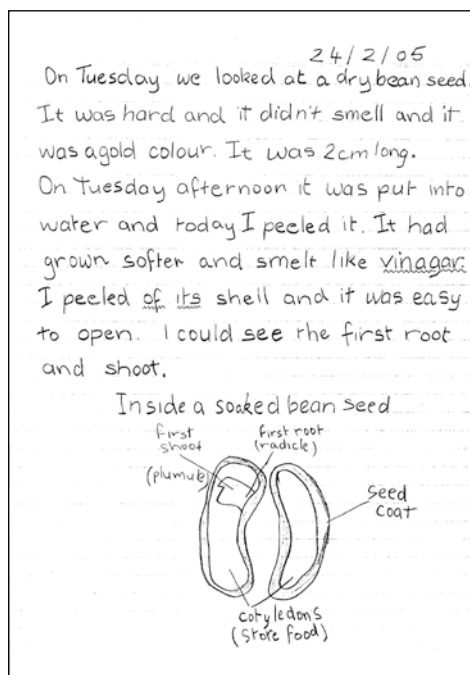 24/2/05
On Tuesday we looked at a dry bean seed.
It was hard and it didn't smell and it
was a gold colour. It was 2cm long.
On Tuesday afternoon it was put into
water and today I peeled it. It had
grown softer and smelt like vinagar.
I peeled of its shell and it was easy
to open. I could see the first root
and shoot.
Inside a soaked bean seed
first
shoot
(plumule)
first root
(radicle)
seed
coat
cotyledons
(store food)